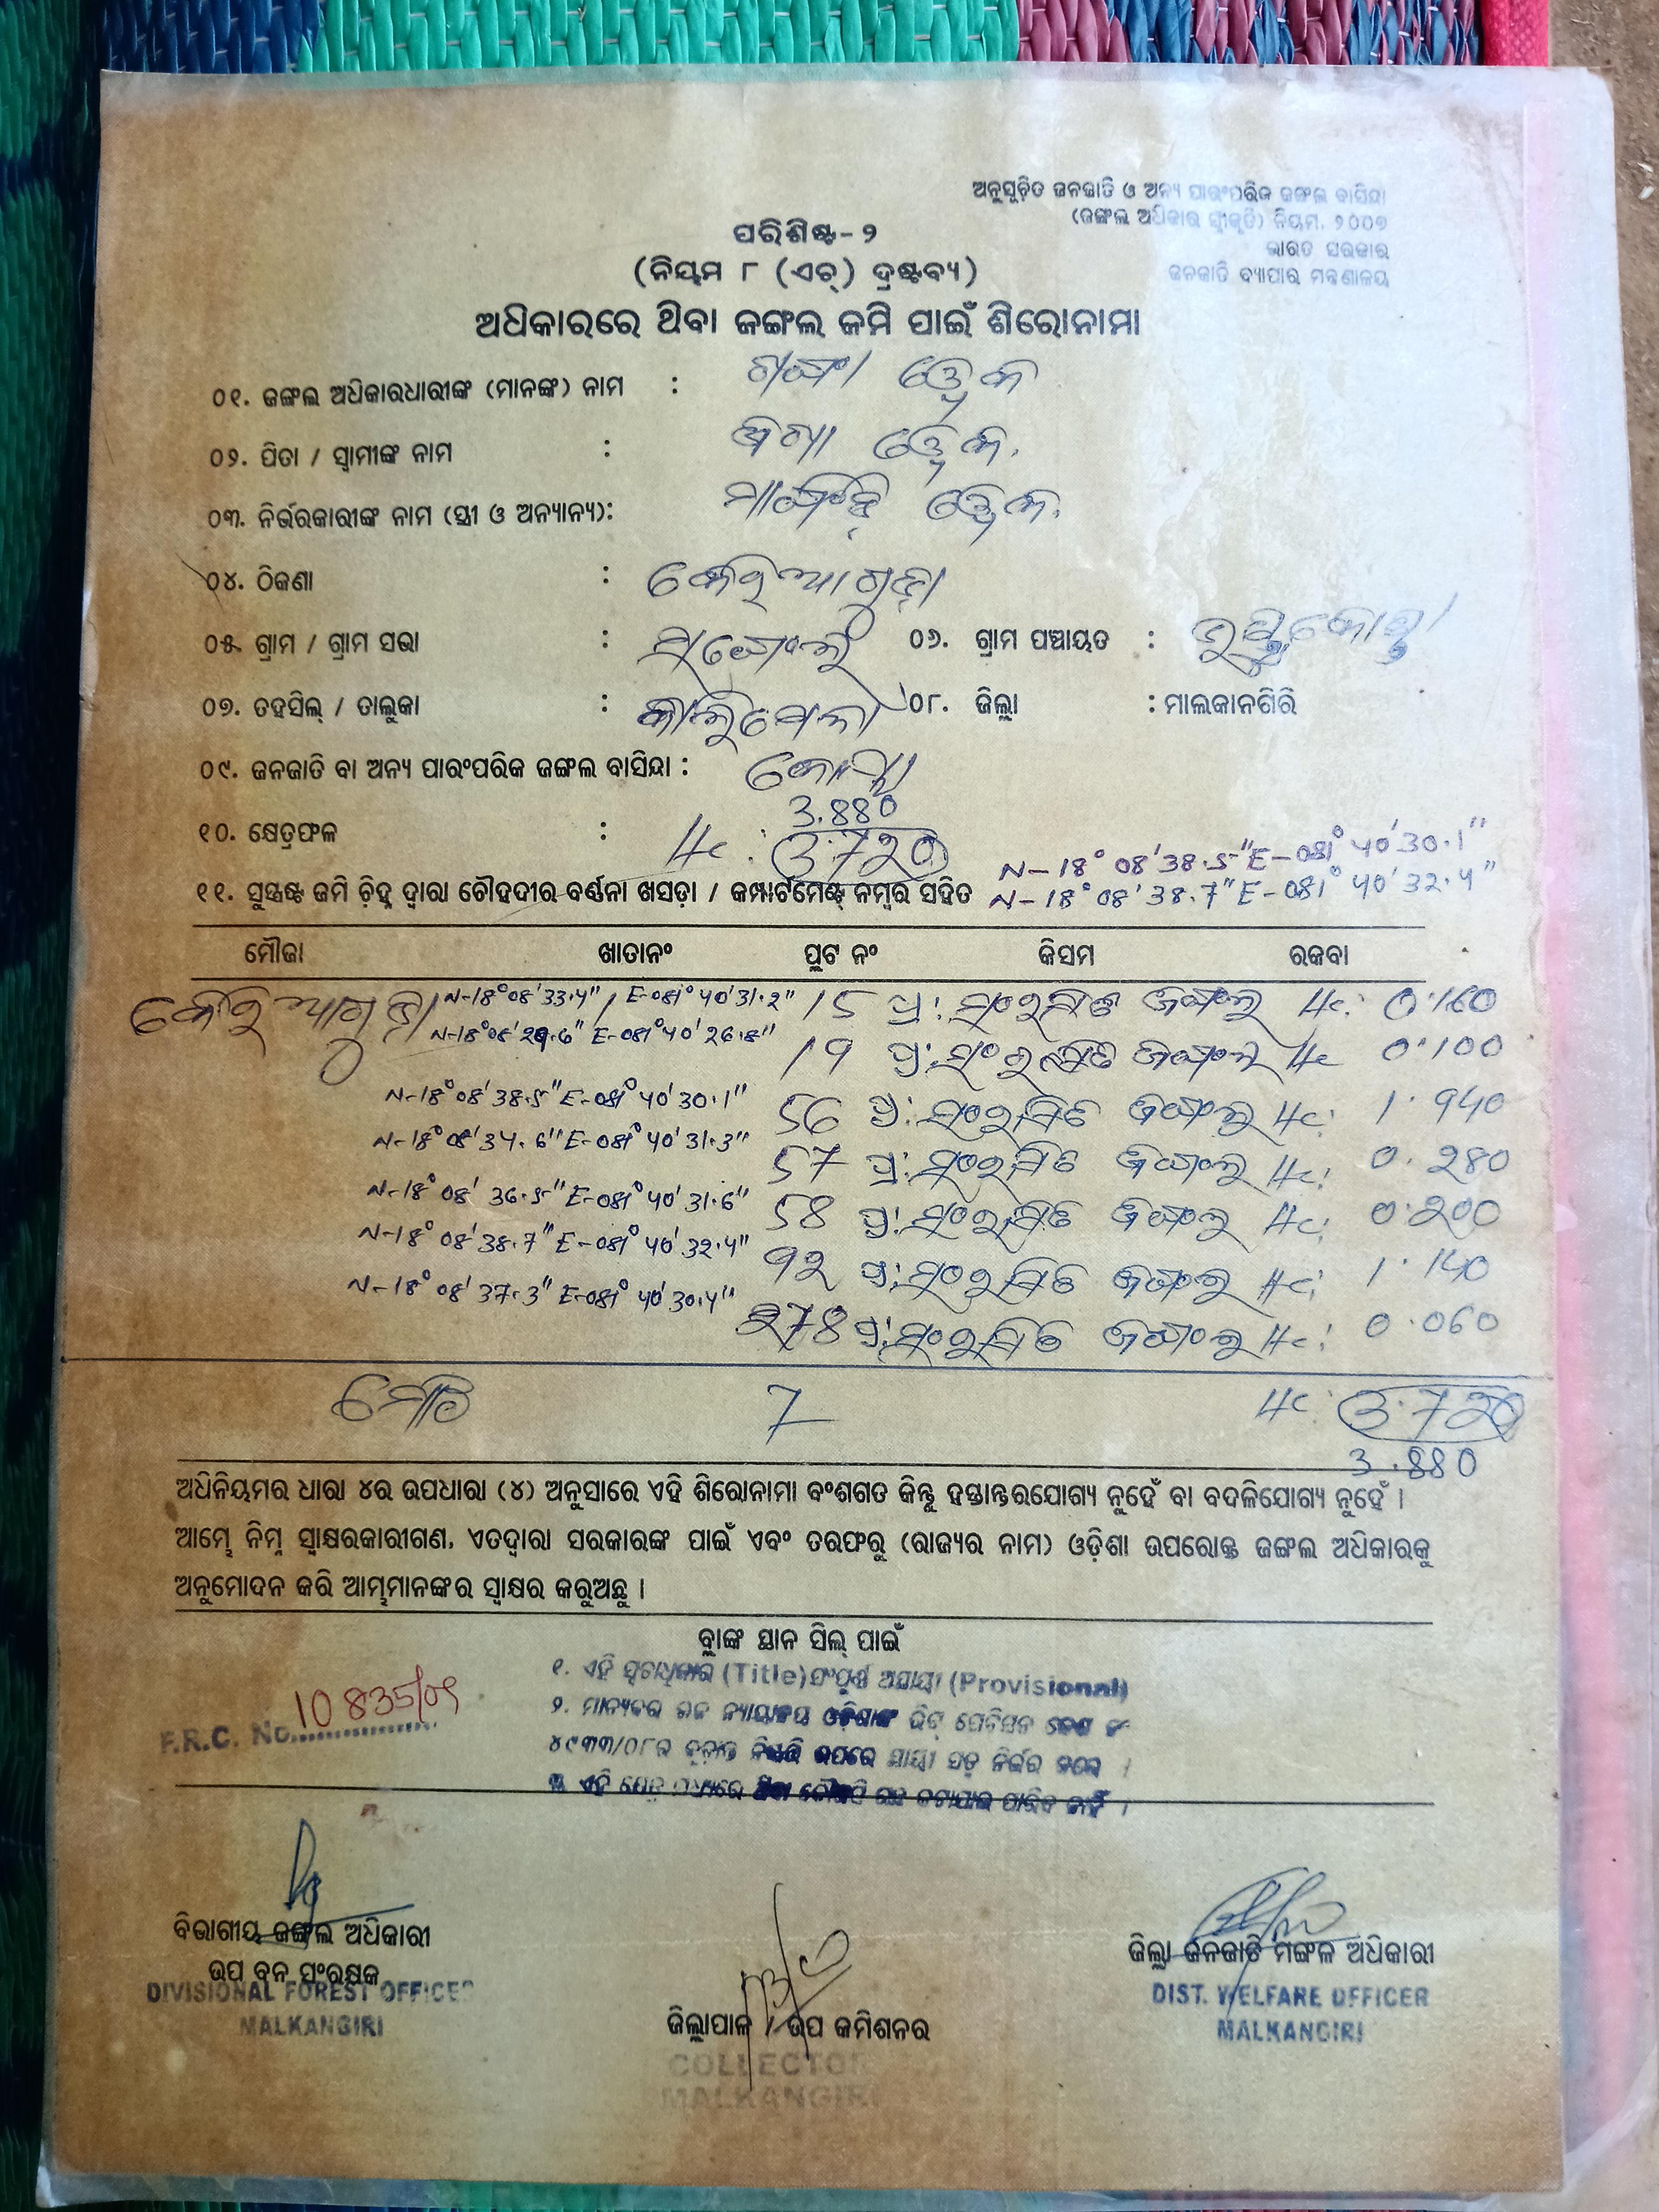 ଅନୁସୂଚିତ ଜନଜାତି ଓ ଅନ୍ୟ ପାରଂପରିକ ଜଙ୍ଗଲ ବାସିନ୍ଦା
(ଜଙ୍ଗଲ ଅଧିକାର ସ୍ୱୀକୃତି) ନିୟମ, ୨୦୦୭
ଭାରତ ସରକାର
ଜନଜାତି ବ୍ୟାପାର ମନ୍ତ୍ରଣାଳୟ
ପରିଶିଷ୍ଟ-୨
(ନିୟମ ୮ (ଏଚ୍) ଦ୍ରଷ୍ଟବ୍ୟ)
ଅଧିକାରରେ ଥିବା ଜଙ୍ଗଲ ଜମି ପାଇଁ ଶିରୋନାମା
୦୧. ଜଙ୍ଗଲ ଅଧିକାରଧାରୀଙ୍କ (ମାନଙ୍କ) ନାମ :
୦୨. ପିତା / ସ୍ୱାମୀଙ୍କ ନାମ :
୦୩. ନିର୍ଭରକାରୀଙ୍କ ନାମ (ସ୍ତ୍ରୀ ଓ ଅନ୍ୟାନ୍ୟ):
୦୪. ଠିକଣା : କେରିଆଗୁଡ଼ା
୦୫. ଗ୍ରାମ / ଗ୍ରାମ ସଭା : ୦୬. ଗ୍ରାମ ପଞ୍ଚାୟତ :
୦୭. ତହସିଲ୍ / ତାଲୁକା : କାଲିମେଳା ୦୮. ଜିଲ୍ଲା : ମାଲକାନଗିରି
୦୯. ଜନଜାତି ବା ଅନ୍ୟ ପାରଂପରିକ ଜଙ୍ଗଲ ବାସିନ୍ଦା : କୋୟା
3.880
୧୦. କ୍ଷେତ୍ରଫଳ : Hc. 3.720
N-18° 08' 38.5" E-081° 40' 30.1"
୧୧. ସୁସ୍ପଷ୍ଟ ଜମି ଚିହ୍ନ ଦ୍ୱାରା ଚୌହଦୀର ବର୍ଣ୍ଣନା ଖସଡ଼ା / କମ୍ପାର୍ଟମେଣ୍ଟ୍ ନମ୍ବର ସହିତ N-18° 08' 38.7" E-081° 40' 32.4"
ମୌଜା ଖାତାନଂ ପ୍ଲଟ ନଂ କିସମ ରକବା
କେରିଆଗୁଡ଼ା N-18° 08' 33.4" / E-081° 40' 31.2" 15 ପ୍ର: ସଂରକ୍ଷିତ ଜଙ୍ଗଲ Hc: 0.160
N-18° 08' 29.6" E-081° 40' 26.8" 19 ପ୍ର: ସଂରକ୍ଷିତ ଜଙ୍ଗଲ Hc 0.100
N-18° 08' 38.5" E-081° 40' 30.1" 56 ପ୍ର: ସଂରକ୍ଷିତ ଜଙ୍ଗଲ Hc: 1.940
N-18° 08' 34.6" E-081° 40' 31.3" 57 ପ୍ର: ସଂରକ୍ଷିତ ଜଙ୍ଗଲ Hc: 0.280
N-18° 08' 36.5" E-081° 40' 31.6" 58 ପ୍ର: ସଂରକ୍ଷିତ ଜଙ୍ଗଲ Hc: 0.200
N-18° 08' 38.7" E-081° 40' 32.4" 92 ପ୍ର: ସଂରକ୍ଷିତ ଜଙ୍ଗଲ Hc: 1.140
N-18° 08' 37.3" E-081° 40' 30.4" 278 ପ୍ର: ସଂରକ୍ଷିତ ଜଙ୍ଗଲ Hc: 0.060
ମୋଟ 7 Hc: 3.720
3.880
ଅଧିନିୟମର ଧାରା ୪ର ଉପଧାରା (୪) ଅନୁସାରେ ଏହି ଶିରୋନାମା ବଂଶଗତ କିନ୍ତୁ ହସ୍ତାନ୍ତରଯୋଗ୍ୟ ନୁହେଁ ବା ବଦଳିଯୋଗ୍ୟ ନୁହେଁ ।
ଆମ୍ଭେ ନିମ୍ନ ସ୍ୱାକ୍ଷରକାରୀଗଣ, ଏତଦ୍ୱାରା ସରକାରଙ୍କ ପାଇଁ ଏବଂ ତରଫରୁ (ରାଜ୍ୟର ନାମ) ଓଡ଼ିଶା ଉପରୋକ୍ତ ଜଙ୍ଗଲ ଅଧିକାରକୁ
ଅନୁମୋଦନ କରି ଆମ୍ଭମାନଙ୍କର ସ୍ୱାକ୍ଷର କରୁଅଛୁ ।
ବ୍ଲାଙ୍କ ସ୍ଥାନ ସିଲ୍ ପାଇଁ
୧. ଏହି ସ୍ୱତ୍ତାଧିକାର (Title) ସଂପୂର୍ଣ୍ଣ ଅସ୍ଥାୟୀ (Provisional)
F.R.C. No. 10835/09
୨. ମାନ୍ୟବର ଉଚ୍ଚ ନ୍ୟାୟାଳୟ ଓଡ଼ିଶାଙ୍କ ରିଟ୍ ପେଟିସନ
୪୯୩୩/୦୮ର ଚୂଡ଼ାନ୍ତ ଉପରେ ସ୍ଥାୟୀ ନିର୍ଭର କରେ ।
ବିଭାଗୀୟ ଜଙ୍ଗଲ ଅଧିକାରୀ
ଉପ ବନ ସଂରକ୍ଷକ
DIVISIONAL FOREST OFFICER
MALKANGIRI
ଜିଲ୍ଲାପାଳ / ଉପ କମିଶନର
COLLECTOR
MALKANGIRI
ଜିଲ୍ଲା ଜନଜାତି ମଙ୍ଗଳ ଅଧିକାରୀ
DIST. WELFARE OFFICER
MALKANGIRI